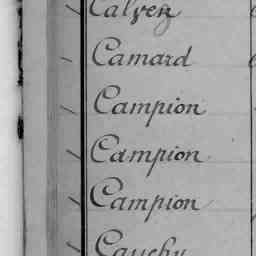 Calvez
Camard
Campion
Campion
Campion
Cauchy